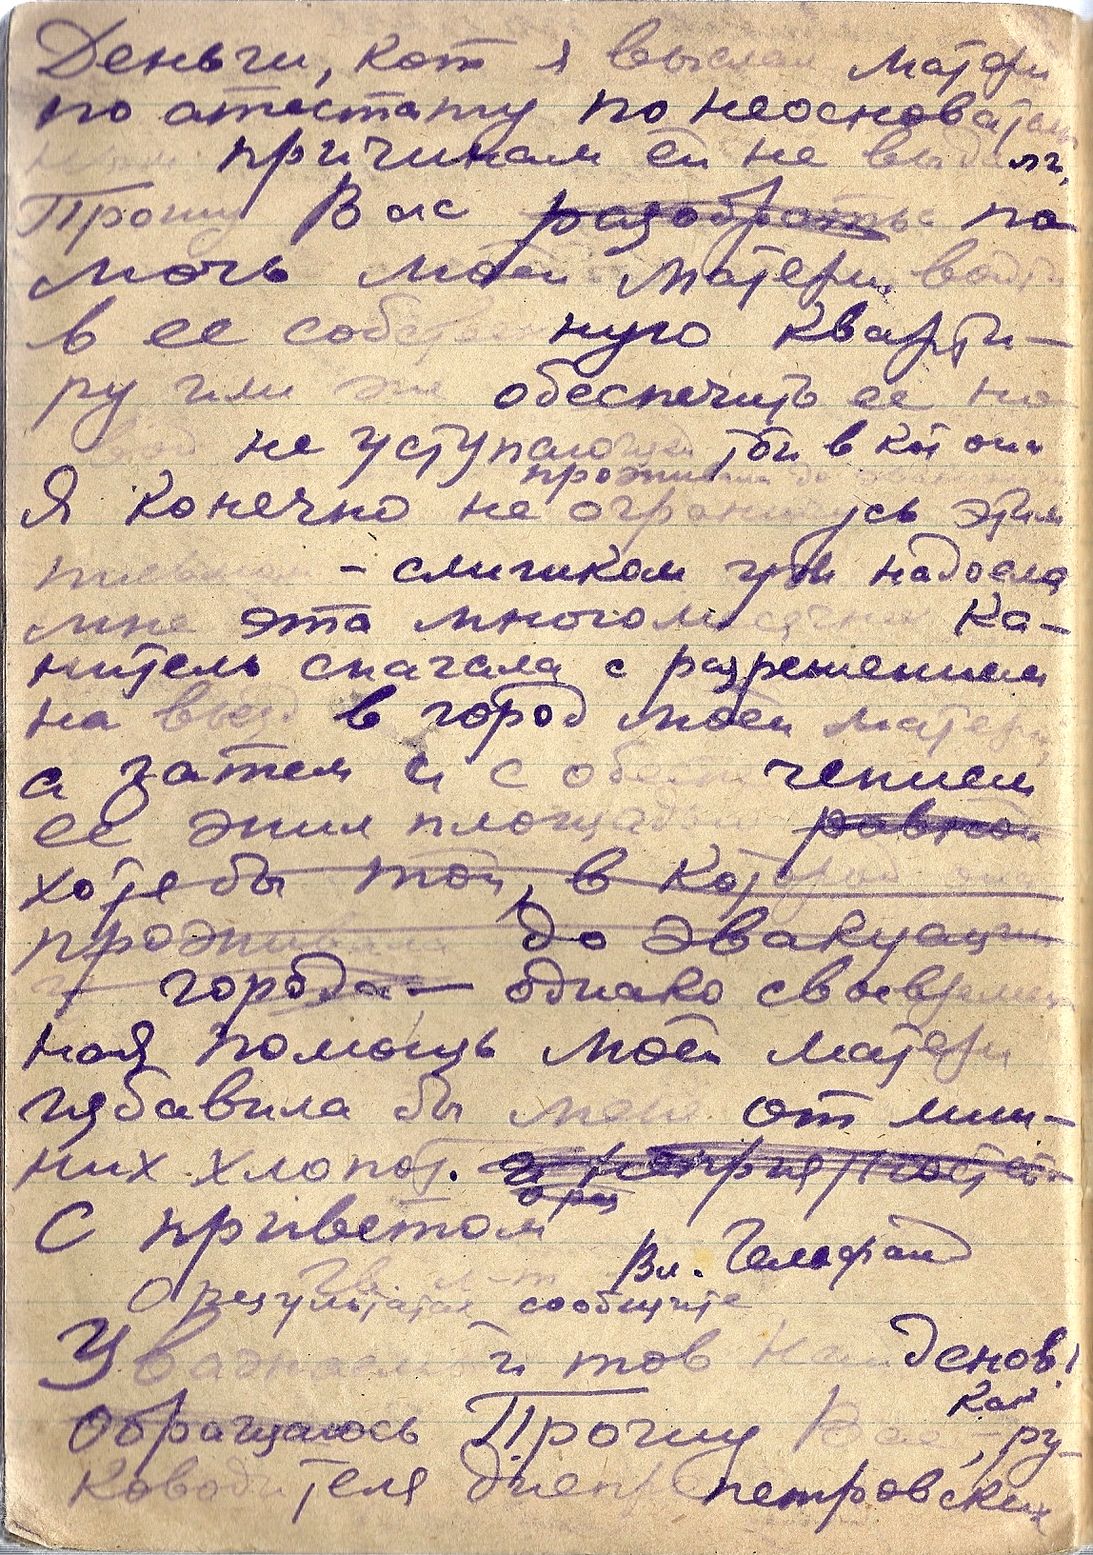 Деньги, кот я выслал матери
по аттестату по неоснователь
ным причинам ей не выдали,
Прошу Вас разобраться по
мочь моей матери войти
в ее собственную кварти-
ру или же обеспечить ее но
вой не уступающей той в кот она
проживала до эвакуации
Я конечно не ограничусь этим
письмом – слишком уж надоела
мне эта многомесячная ка-
нитель сначала с разрешением
на въезд в город моей матери,
а затем и с обеспечением
ее жил площадью равной
хотя бы той, в которой она
проживала до эвакуаци
и города – однако своевремен
ная помощь моей матери
избавила бы меня от лиш-
них хлопот. и неприятностей
С приветом
Вл. Гельфанд
Гв. л-т
О результатах сообщите
Уважаемый тов Найденов!
Обращаюсь Прошу Вас, как ру-
ководителя днепропетровских